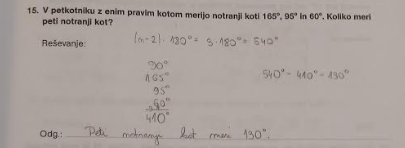 15. V petkotniku z enim pravim kotom merijo notranji koti 165°, 95° in 60°. Koliko meri
peti notranji kot?
Reševanje:
(n-2)·180° = 3·180° = 540°
90°
165°
95°
+60°
410°
540° - 410° = 130°
Odg.: Peti notranji kot meri 130°.